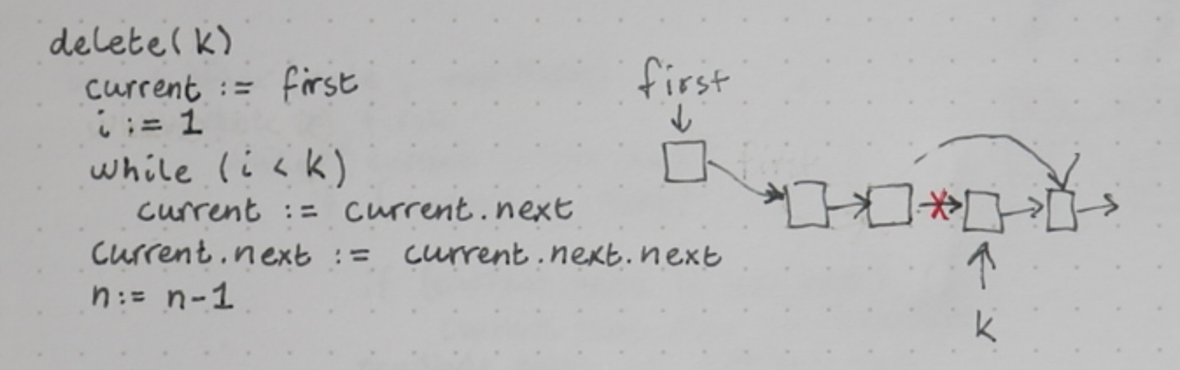 delete(k)
current := first
i := 1
while (i < k)
current := current.next
current.next := current.next.next
n := n-1
first
k